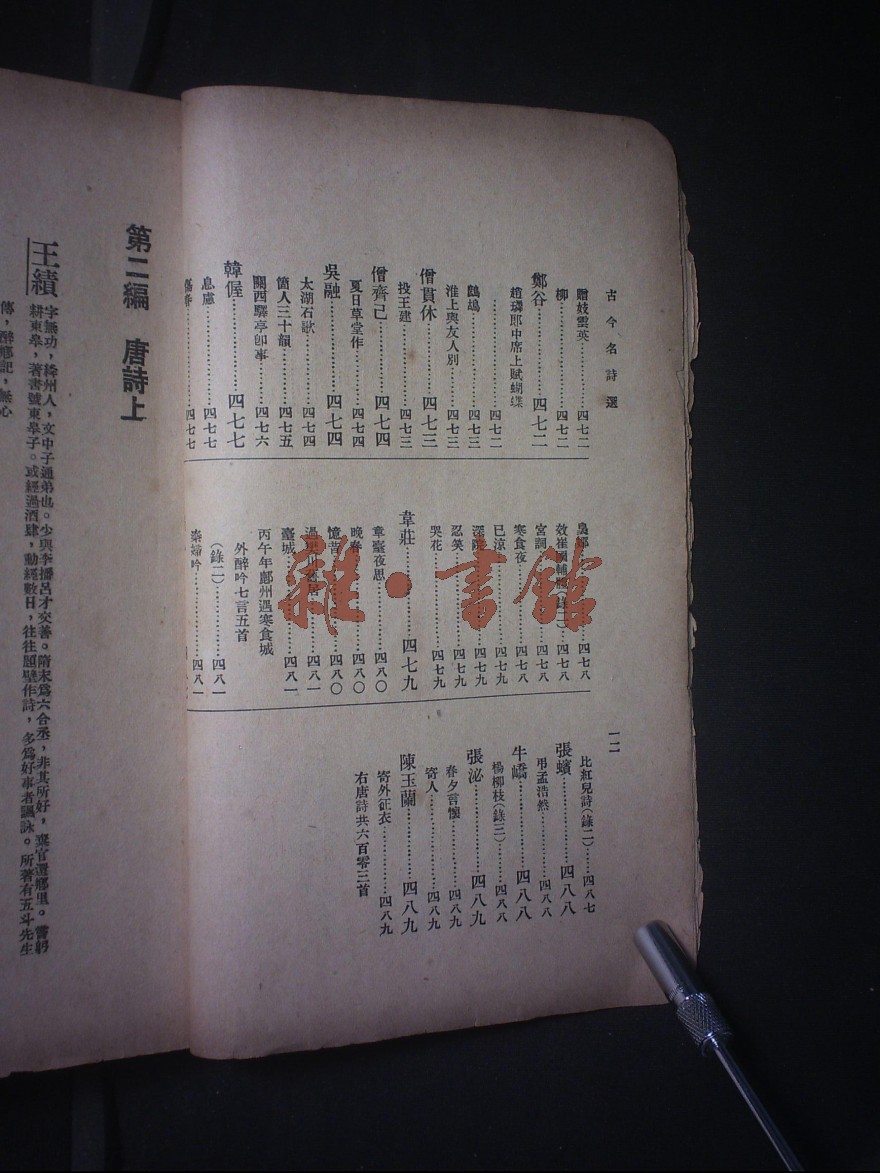 古今名詩選
一二
贈妓雲英…………四七二
柳…………四七二
鄭谷…………四七二
趙璘郎中席上賦蝴蝶
…………四七二
鷓鴣…………四七三
淮上與友人別…………四七三
僧貫休…………四七三
投王建…………四七三
僧齊己…………四七四
夏日草堂作…………四七四
吳融…………四七四
太湖石歌…………四七四
箇人三十韻…………四七五
關西驛亭卽事…………四七六
韓偓…………四七七
息慮…………四七七
…………四七七
…………四七八
…………四七八
宮詞…………四七八
寒食夜…………四七八
已涼…………四七九
深院…………四七九
忍笑…………四七九
哭花…………四七九
韋莊…………四七九
章臺夜思…………四八〇
晚春…………四八〇
憶昔…………四八〇
…………四八一
臺城…………四八一
丙午年鄜州遇寒食城
外醉吟七言五首
(錄二)…………四八一
秦婦吟…………四八一
比紅兒詩(錄二)…………四八七
張蠙…………四八八
弔孟浩然…………四八八
牛嶠…………四八八
楊柳枝(錄三)…………四八八
張泌…………四八九
春夕言懷…………四八九
寄人…………四八九
陳玉蘭…………四八九
寄外征衣…………四八九
右唐詩共六百零三首
第二編 唐詩上
王績
字無功,絳州人,文中子通弟也。少與李播呂才交善。隋末爲六合丞,非其所好,棄官還鄉里。嘗躬
耕東皋,著書號東皋子。或經過酒肆,動經數日,往往題壁作詩,多爲好事者諷詠。所著有五斗先生
傳,醉鄉記,無心
雜·書館